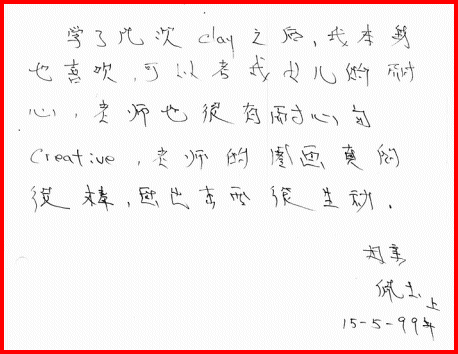 学了几次 clay 之后, 我本身
也喜欢, 可以考我女儿的耐
心, 老师也很有耐心
Creative, 老师的图画真的
很棒, 画出东西很生动.
上
15-5-99年